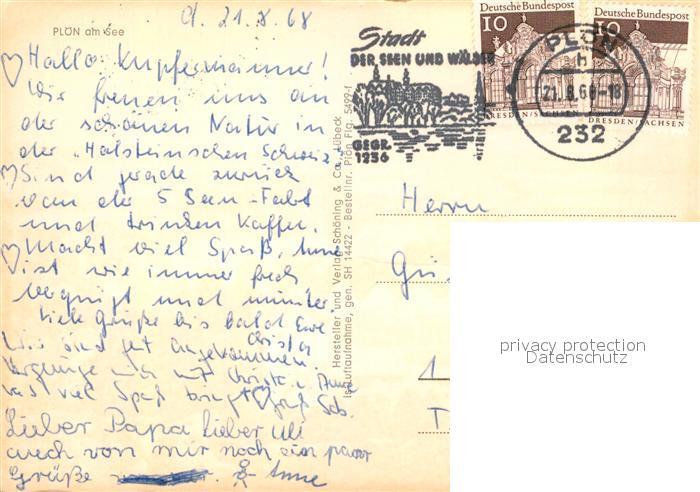 PLÖN am See
d. 21.8.68
Hallo Kupfermänner!
Wir freuen uns an
der schönen Natur in
der "Holsteinischen Schweiz"
Sind gerade zurück
von der 5 Seen-Fahrt
und trinken Kaffee.
Macht viel Spaß, Anne
ist wie immer frech
vergnügt und munter.
Liebe Grüße bis bald Eure
Christa
Wir sind gut angekommen.
Vergnüge mich mit Christa u. Anne
was viel Spaß bringt
Lieber Papa lieber Uli
auch von mir noch ein paar
Grüße Anne
Hersteller und Verlag Schöning & Co., Lübeck
Luftaufnahme, gen. SH 14422 - Bestellnr. Plön Flg. 5499-f
Stadt
DER SEEN UND WÄLDER
GEGR.
1236
Deutsche Bundespost
10
DRESDEN/SACHSEN
Deutsche Bundespost
10
DRESDEN/SACHSEN
PLÖN
h
21.8.68-18
232
Herrn
1
privacy protection
Datenschutz